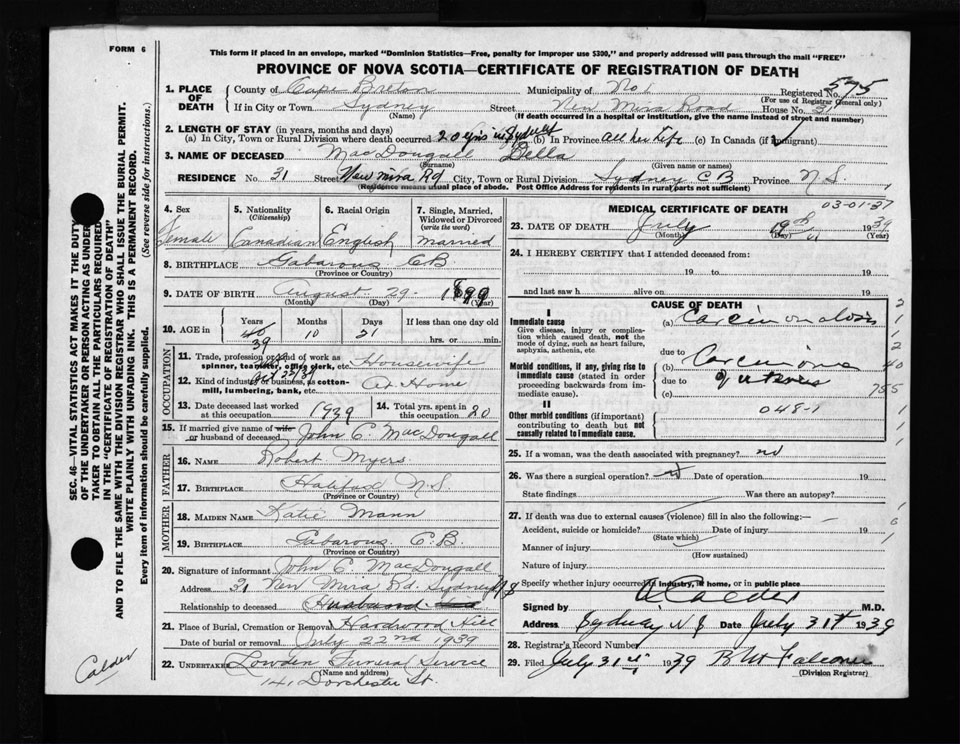 FORM 6
This form if placed in an envelope, marked "Dominion Statistics—Free, penalty for improper use $300," and properly addressed will pass through the mail "FREE"
PROVINCE OF NOVA SCOTIA—CERTIFICATE OF REGISTRATION OF DEATH
575
1. PLACE OF DEATH County of Cape Breton Municipality of No 1 Registered No.
(For use of Registrar General only)
If in City or Town Sydney Street New Mira Road House No. 31
(Name) (If death occurred in a hospital or institution, give the name instead of street and number)
2. LENGTH OF STAY (in years, months and days)
(a) In City, Town or Rural Division where death occurred 20 yrs in Sydney (b) In Province all her Life (c) In Canada (if immigrant)
3. NAME OF DECEASED MacDougall Della
(Surname) (Given name or names)
RESIDENCE No. 31 Street New Mira Rd City, Town or Rural Division Sydney C B Province N.S.
(Residence means usual place of abode. Post Office Address for residents in rural parts not sufficient)
4. Sex Female
5. Nationality (Citizenship) Canadian
6. Racial Origin English
7. Single, Married, Widowed or Divorced (write the word) married
8. BIRTHPLACE Gabarous C B
(Province or Country)
9. DATE OF BIRTH August 29 1899
(Month) (Day) (Year)
10. AGE in Years Months Days If less than one day old
40 39 10 21 hrs. or min.
OCCUPATION
11. Trade, profession or kind of work as spinner, teamster, office clerk, etc. Housewife
12. Kind of industry or business, as cotton-mill, lumbering, bank, etc. At Home
13. Date deceased last worked at this occupation 1939
14. Total yrs. spent in this occupation 20
15. If married give name of wife or husband of deceased John C. MacDougall
FATHER
16. NAME Robert Myers
17. BIRTHPLACE Halifax N.S.
(Province or Country)
MOTHER
18. MAIDEN NAME Katie Mann
19. BIRTHPLACE Gabarous C.B.
(Province or Country)
20. Signature of informant John C MacDougall
Address 31 New Mira Rd. Sydney N S
Relationship to deceased Husband
21. Place of Burial, Cremation or Removal Hardwood Hill
Date of burial or removal July 22nd 1939
22. UNDERTAKER Lowden Funeral Service
(Name and address)
141 Dorchester St.
MEDICAL CERTIFICATE OF DEATH
03-01-37
23. DATE OF DEATH July 19th 1939
(Month) (Day) (Year)
24. I HEREBY CERTIFY that I attended deceased from:
19 to 19
and last saw h alive on 19
CAUSE OF DEATH
I
Immediate cause
Give disease, injury or complication which caused death, not the mode of dying, such as heart failure, asphyxia, asthenia, etc.
(a) Carcinomatosis
due to
Morbid conditions, if any, giving rise to immediate cause (stated in order proceeding backwards from immediate cause).
(b) Carcinoma
due to
(c) of uterus
II
Other morbid conditions (if important) contributing to death but not causally related to immediate cause.
048-1
2
1
1
2
40
755
25. If a woman, was the death associated with pregnancy? no
26. Was there a surgical operation? Date of operation 19
State findings Was there an autopsy?
27. If death was due to external causes (violence) fill in also the following:—
Accident, suicide or homicide? Date of injury 19
(State which)
Manner of injury
(How sustained)
Nature of injury
Specify whether injury occurred in industry, in home, or in public place
Signed by A Calder M.D.
Address Sydney N S Date July 31st 1939
28. Registrar's Record Number
29. Filed July 31st 1939
(Division Registrar)
SEC. 46—VITAL STATISTICS ACT MAKES IT THE DUTY OF THE UNDERTAKER OR PERSON ACTING AS UNDERTAKER TO OBTAIN ALL THE PARTICULARS REQUIRED IN THE "CERTIFICATE OF REGISTRATION OF DEATH" AND TO FILE THE SAME WITH THE DIVISION REGISTRAR WHO SHALL ISSUE THE BURIAL PERMIT.
WRITE PLAINLY WITH UNFADING INK. THIS IS A PERMANENT RECORD.
Every item of information should be carefully supplied.
(See reverse side for instructions.)
Calder